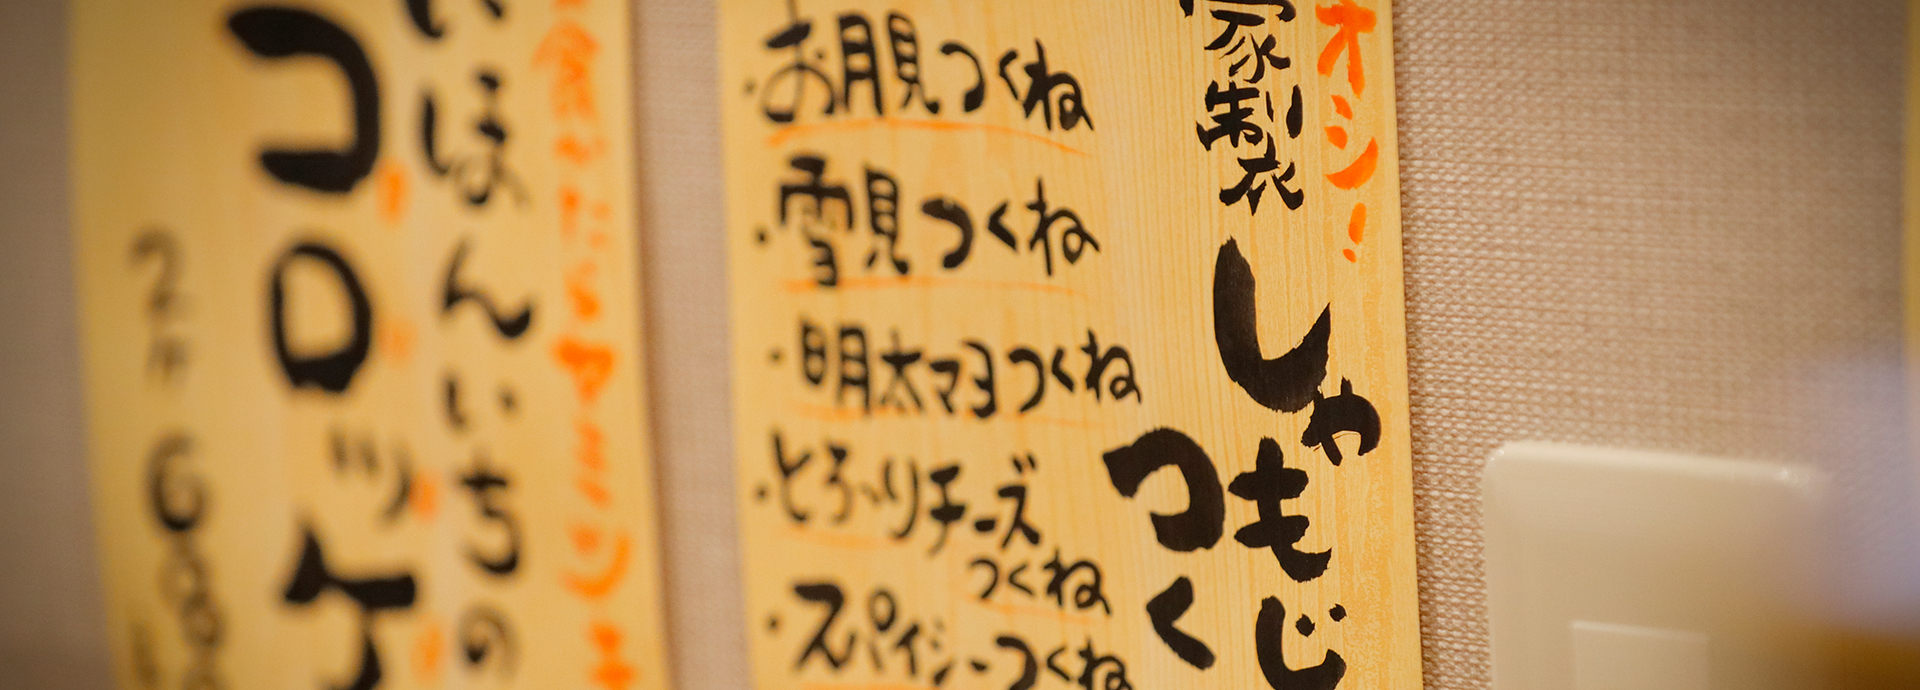 オシ!
家製
しゃもじ
つく
・お月見つくね
・雪見つくね
・明太マヨつくね
・とろ〜りチーズ
つくね
・スパイシーつくね
いほんいちの
コロッケ